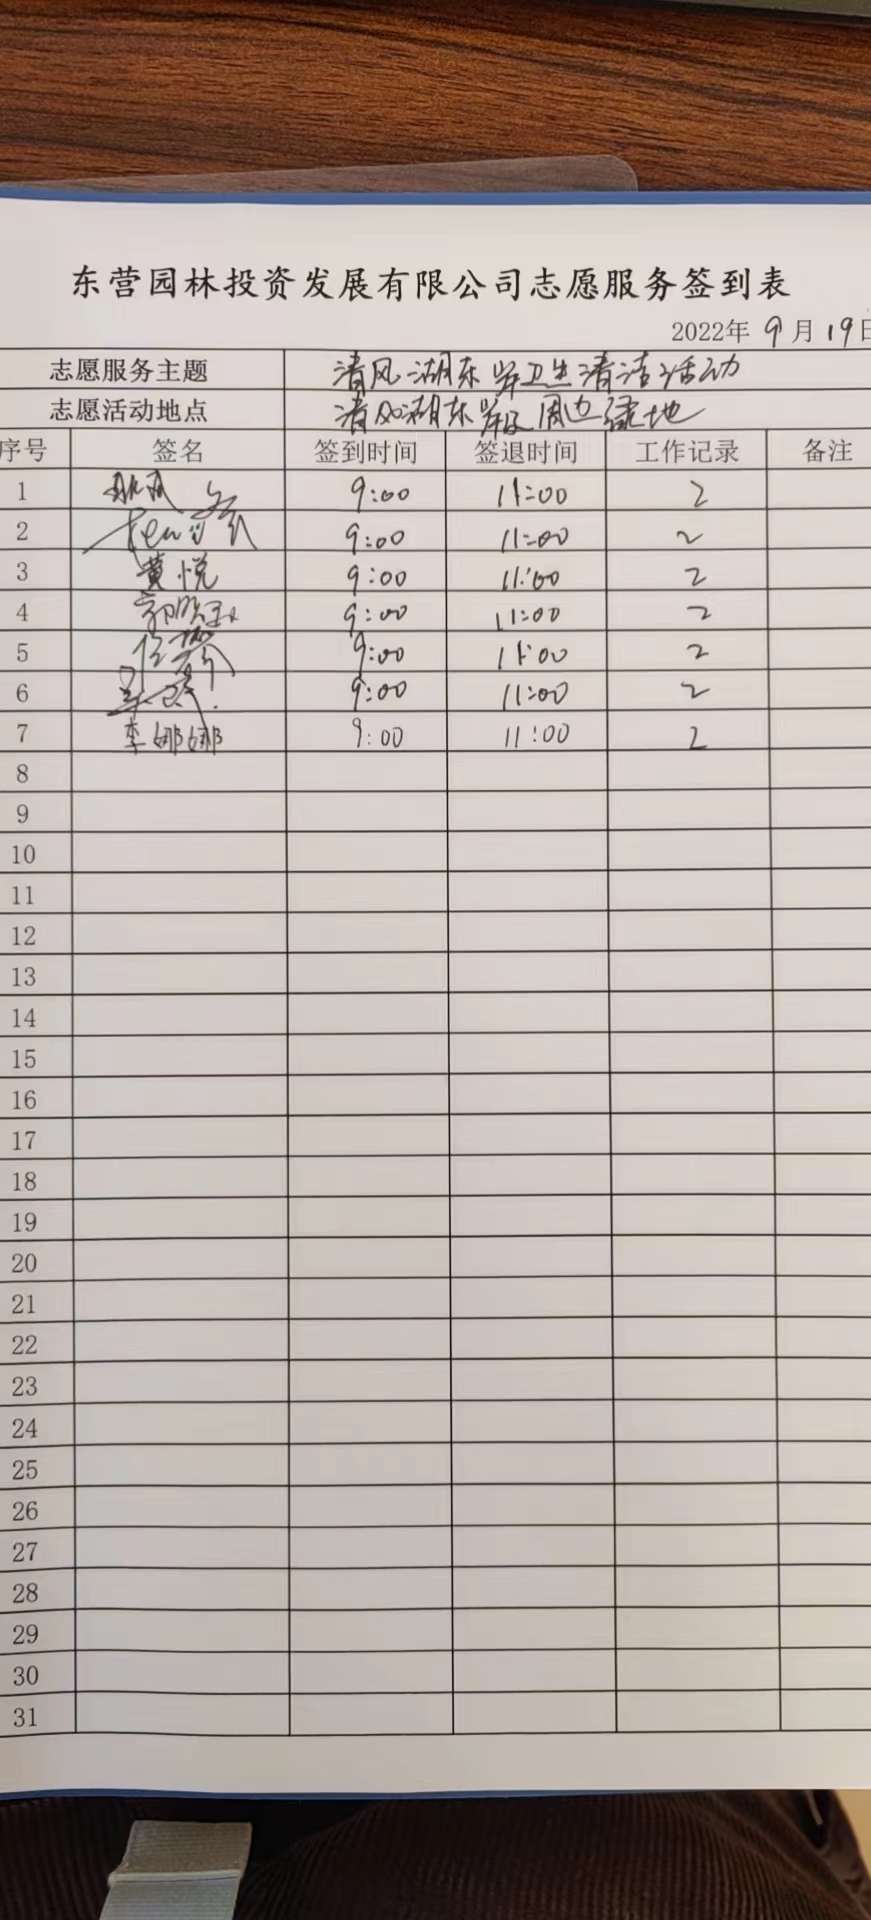 东营园林投资发展有限公司志愿服务签到表
2022年 9月19日
志愿服务主题 清风湖东岸卫生清洁活动
志愿活动地点 清风湖东岸及周边绿地
序号 签名 签到时间 签退时间 工作记录 备注
1 9:00 11:00 2
2 9:00 11:00 2
3 黄悦 9:00 11:00 2
4 9:00 11:00 2
5 9:00 11:00 2
6 9:00 11:00 2
7 李娜娜 9:00 11:00 2
8
9
10
11
12
13
14
15
16
17
18
19
20
21
22
23
24
25
26
27
28
29
30
31